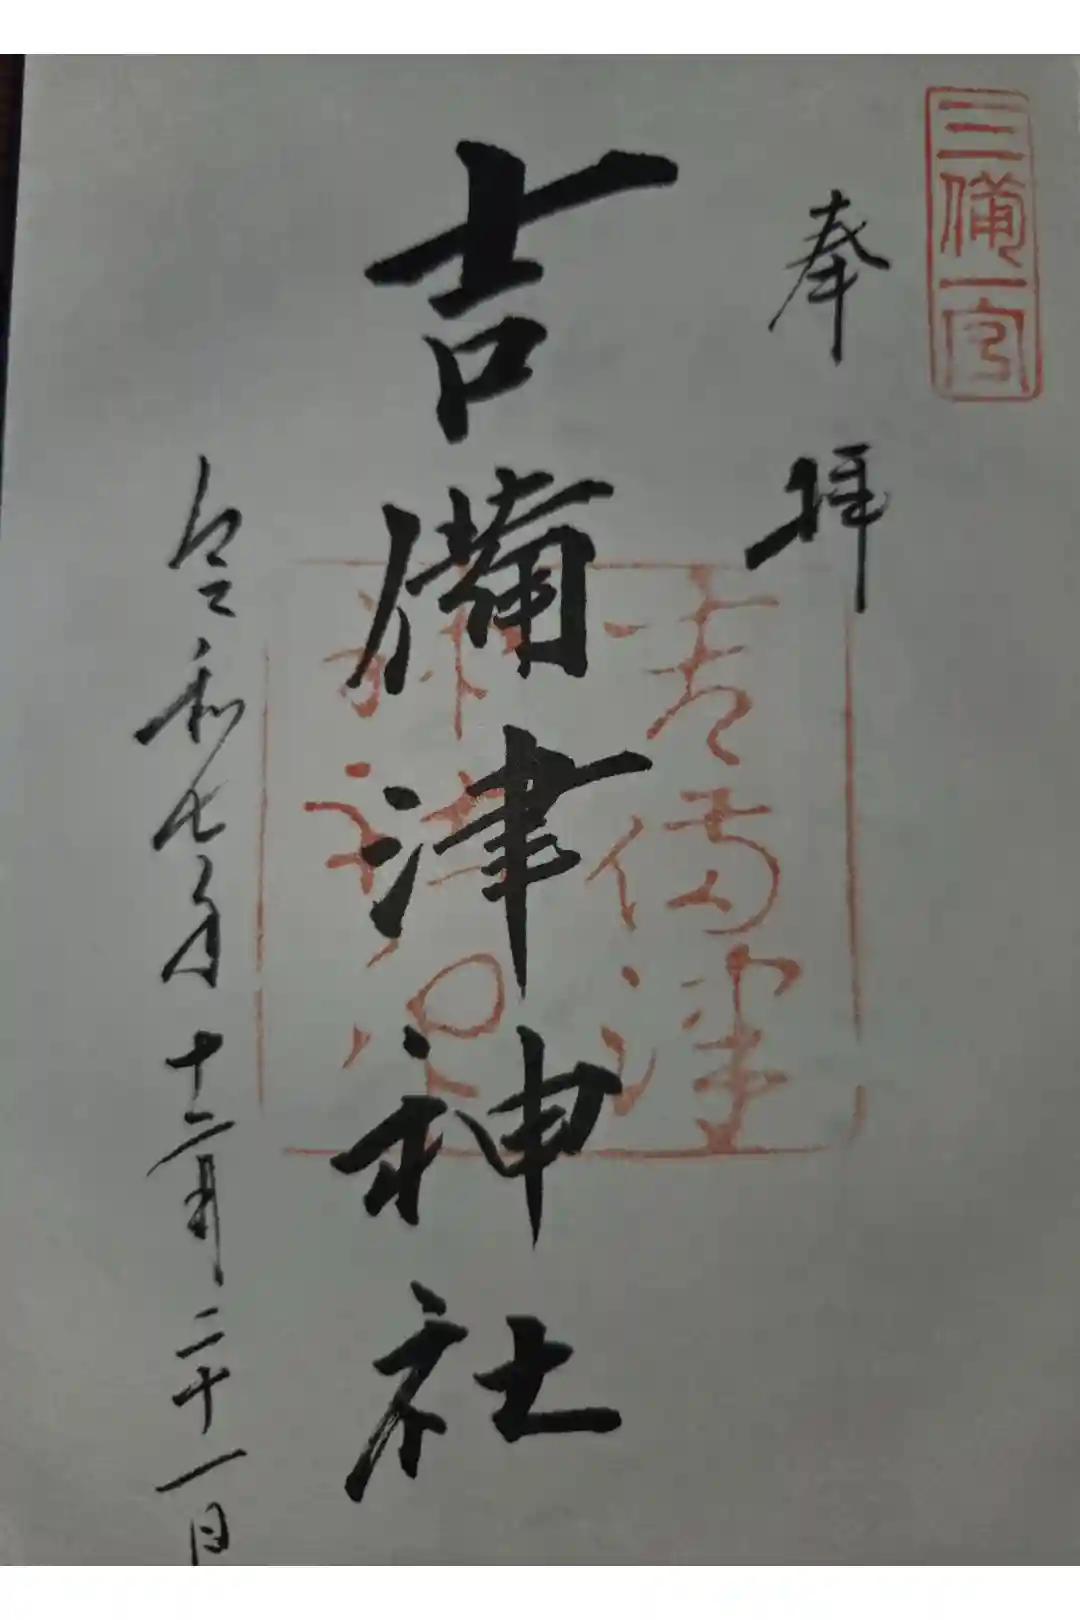 三備一宮
奉拝
吉備津神社
吉備津
令和七年十二月二十一日